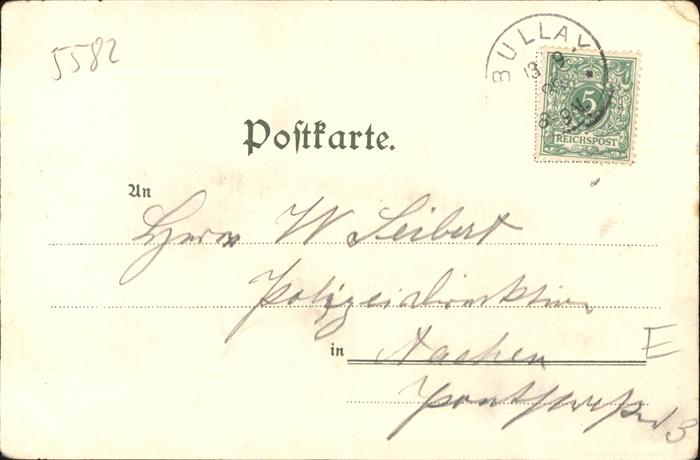 5582
BULLAY
13 9
5
REICHSPOST
Postkarte.
An
Herrn W Seibert
Polizeidirektion
in Aachen
E
Pontstraße
3